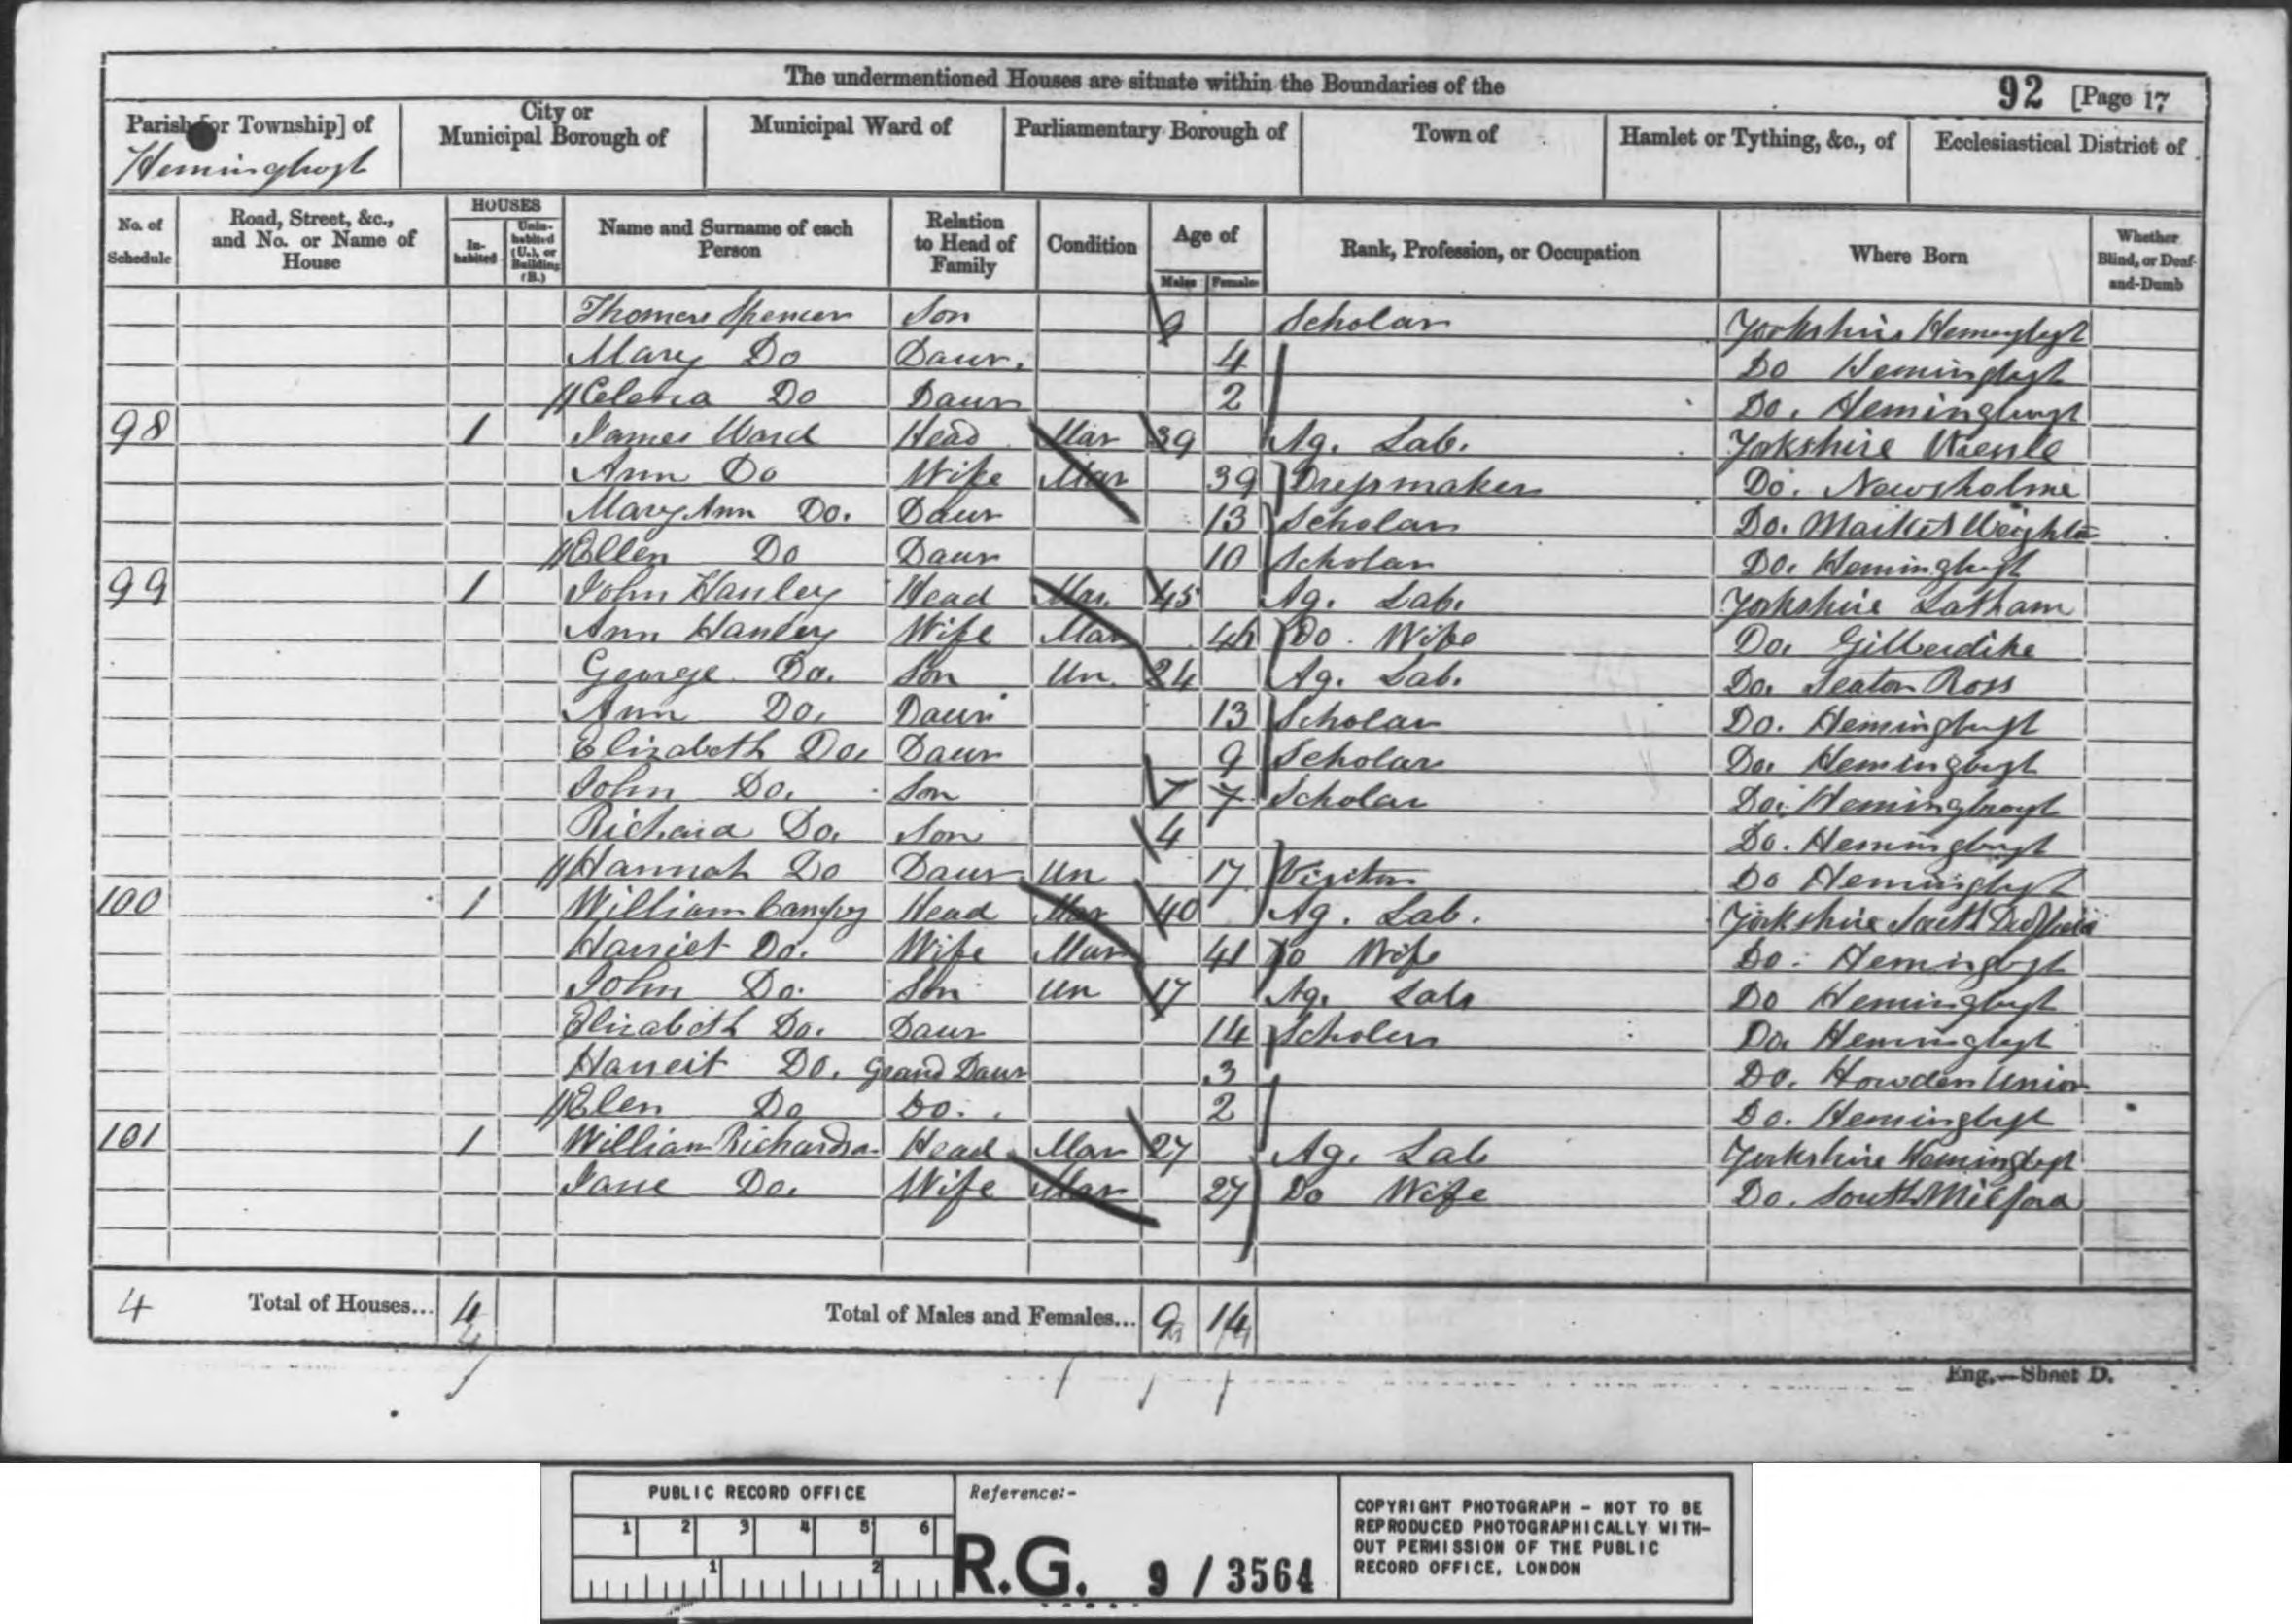 The undermentioned Houses are situate within the Boundaries of the
92 [Page 17
Parish [or Township] of
Hemingbrogh
City or Municipal Borough of
Municipal Ward of
Parliamentary Borough of
Town of
Hamlet or Tything, &c., of
Ecclesiastical District of
No. of Schedule
Road, Street, &c., and No. or Name of House
HOUSES
In-habited
Unin-habited (U.), or Building (B.)
Name and Surname of each Person
Relation to Head of Family
Condition
Age of
Males Females
Rank, Profession, or Occupation
Where Born
Whether Blind, or Deaf-and-Dumb
Thomas Spencer Son 9 Scholar Yorkshire
Mary Do Daur. 4 Do
Do Daur 2 Do.
98 1 James Ward Head Mar 39 Ag. Lab. Yorkshire
Ann Do Wife Mar 39 Dressmaker Do. Newsholme
Mary Ann Do. Daur 13 Scholar Do. Market Weighton
Ellen Do Daur 10 Scholar Do.
99 1 John Hanley Head Mar. 45 Ag. Lab. Yorkshire Latham
Ann Hanley Wife Mar Do. Wife Do. Gilberdike
George Do. Son Un. 24 Ag. Lab. Do. Seaton Ross
Ann Do. Daur 13 Scholar Do.
Elizabeth Do. Daur 9 Scholar Do.
John Do. Son 7 7 Scholar Do.
Richard Do. Son 4 Do.
Hannah Do Daur Un 17 Visitor Do
100 1 William Head Mar 40 Ag. Lab. Yorkshire South
Harriet Do. Wife Mar 41 Do Wife Do.
John Do. Son Un 17 Ag. Lab Do
Elizabeth Do. Daur 14 Scholar Do.
Harreit Do. Grand Daur 3 Do. Howden Union
Elen Do Do. 2 Do.
101 1 William Richardson Head Mar 27 Ag. Lab Yorkshire
Jane Do. Wife Mar 27 Do Wife Do. South Milford
4 Total of Houses... 4
4
Total of Males and Females... 9 14
Eng.—Sheet D.
PUBLIC RECORD OFFICE
1 2 3 4 5 6
1 2
Reference:-
R.G. 9 / 3564
COPYRIGHT PHOTOGRAPH - NOT TO BE
REPRODUCED PHOTOGRAPHICALLY WITH-
OUT PERMISSION OF THE PUBLIC
RECORD OFFICE, LONDON